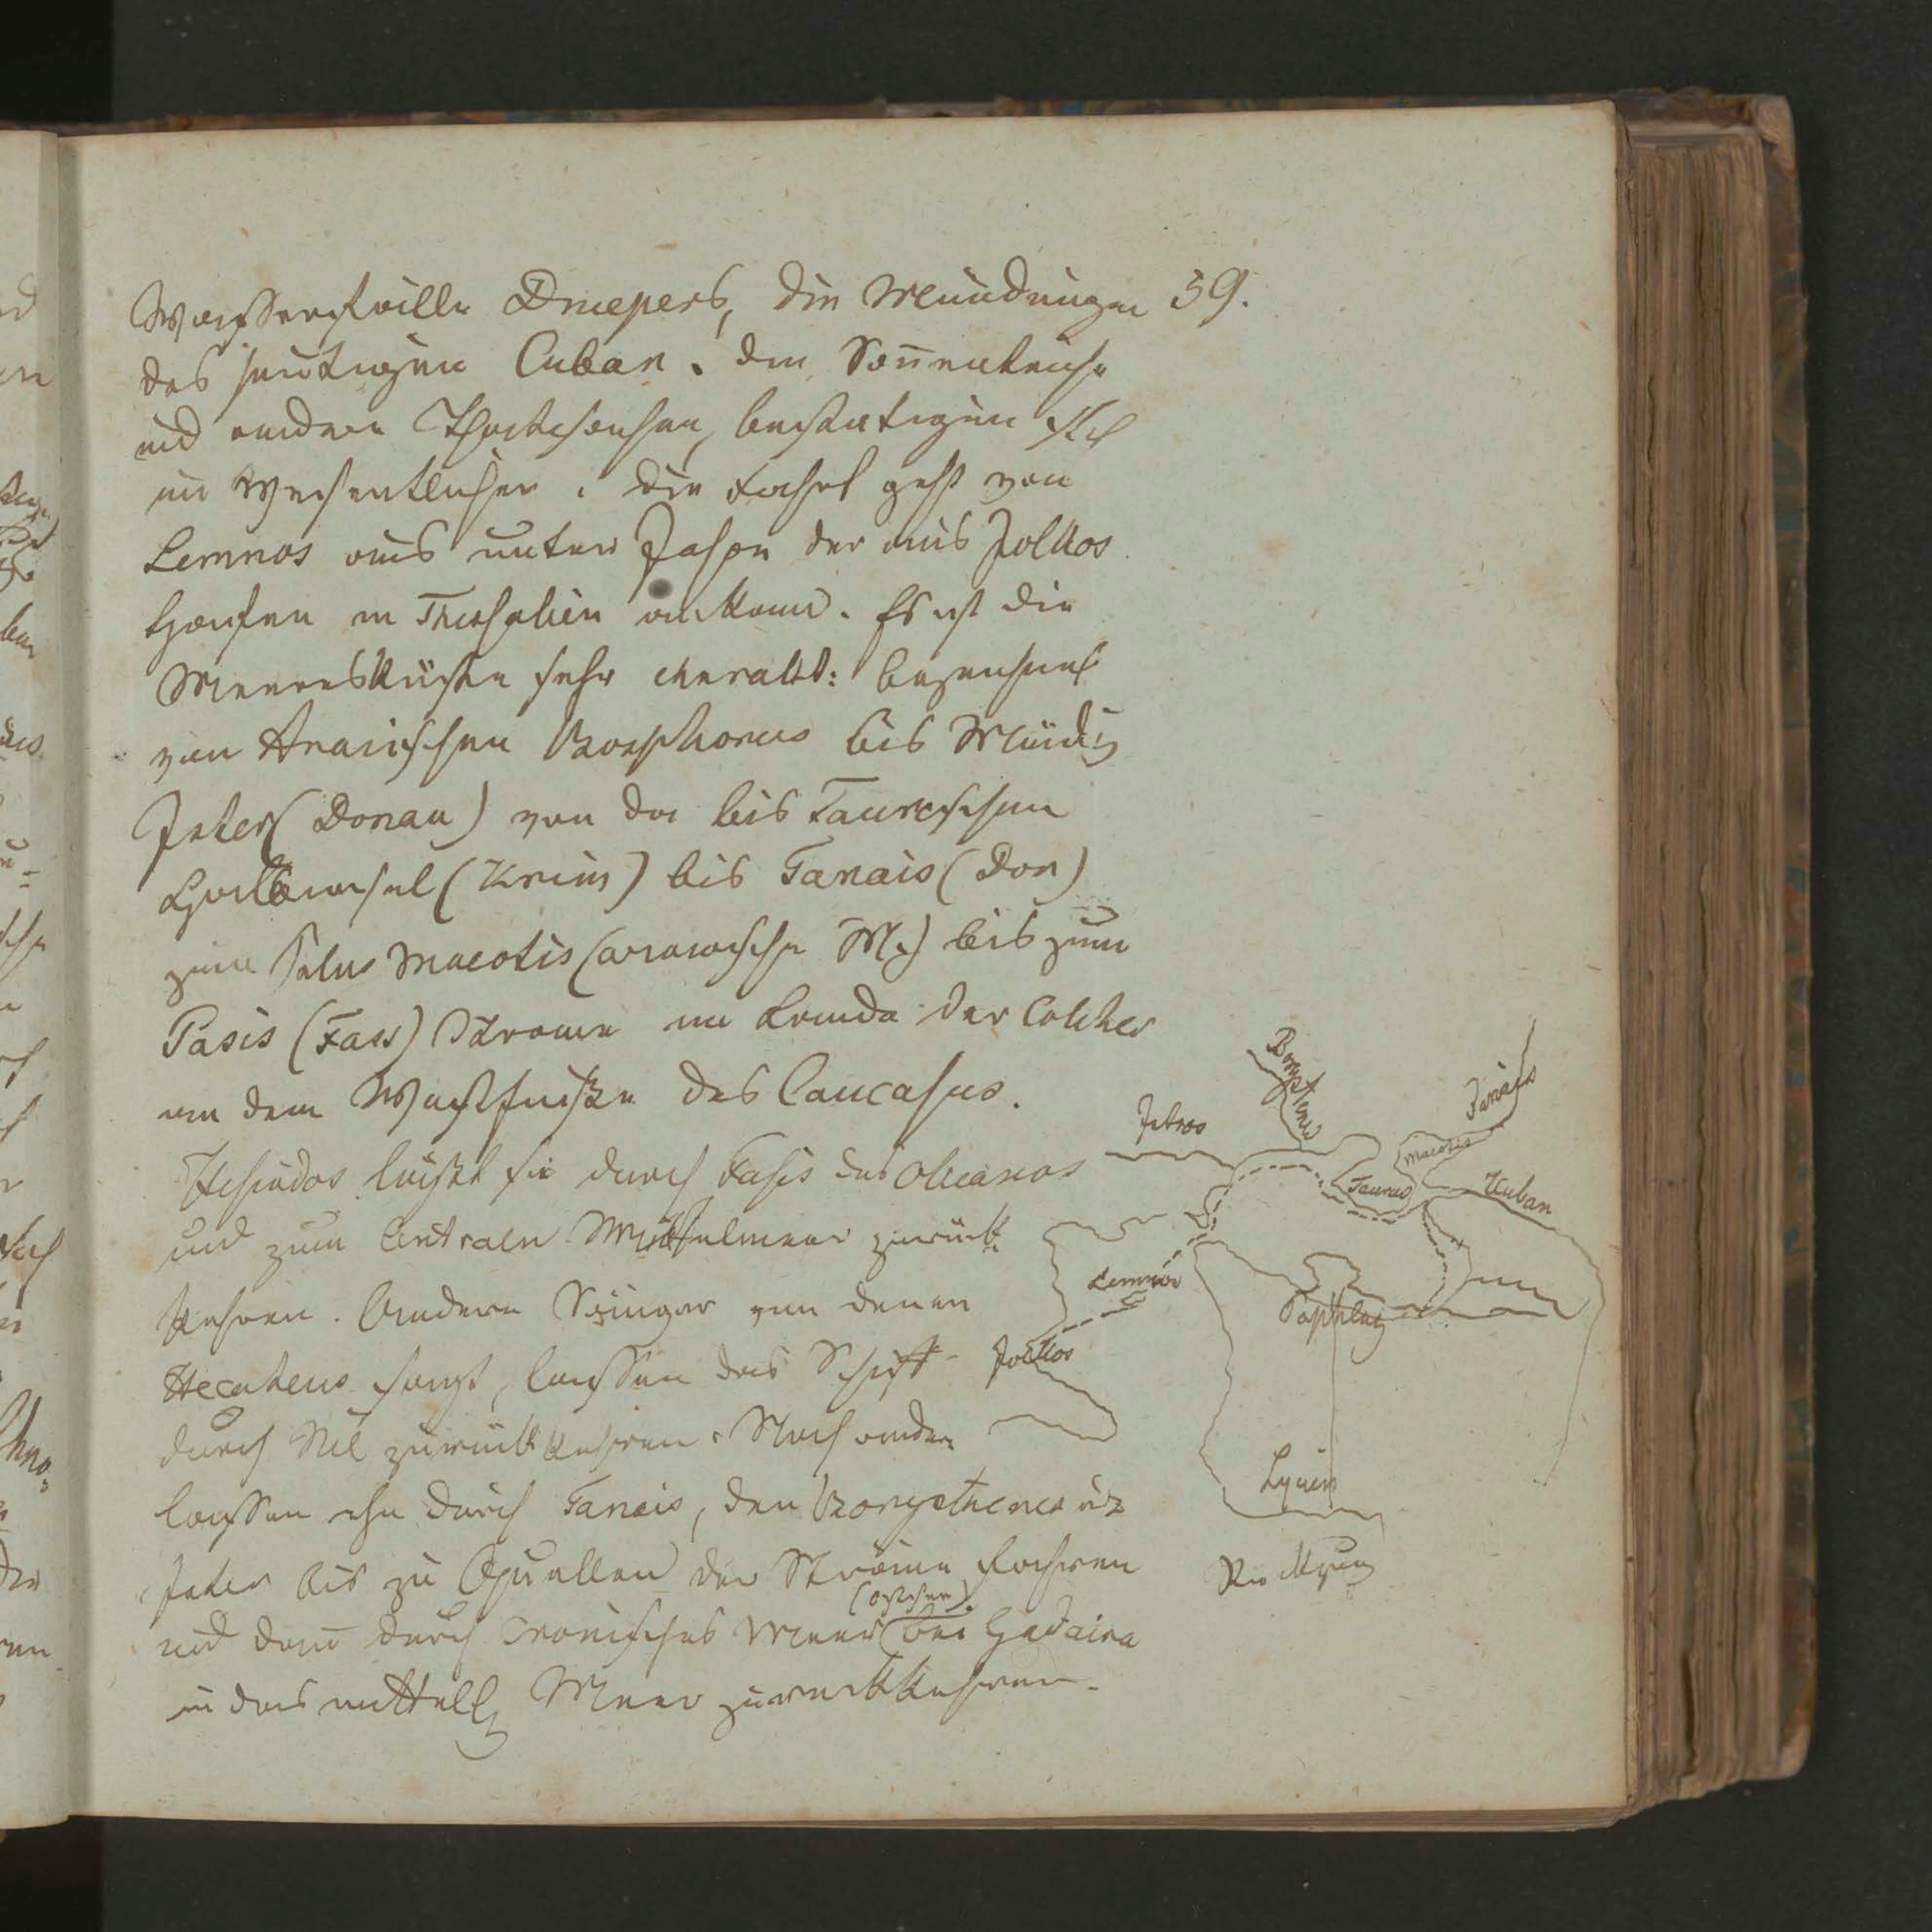 59.
Wasserfälle Dniepers, die Mündungen
des heutigen Cuban. den Sonnenteiche
und andere Thatsachen, bestätigen sich
im Wesentlichen. die Fahrt geht von
Lemnos aus unter Jason der aus Jolkos
Hafen in Thessalien ankam. Es ist die
Meeresküste sehr charakt: bezeichnet
von Thracischen Bosphorus bis Mündg
Ister (Donau) von da bis Taurischen
Halbinsel (Krim) bis Tanais (Don)
zum Palus Maeotis (asowsche M.) bis zum
Pasis (Fass) Strome im Lande der Colcher
an dem Westfuße des Caucasus.
Hesiodos läßt sie durch Fasis des Okeanos
und zum Centralen Mittelmeer zurück
kehren. Andere Sänger von denen
Hecateus sagt, lassen das Schiff
durch Nil zurückkehren. Noch andere
lassen ihn durch Tanais, den Borysthenes u
Ister bis zu Quellen der Ströme fahren
und dann durch Cronisches Meer bei Gadaira
in das mittell Meer zurückkehren.
Borysthenes
Tanais
Istros
Maeotis
Taurus
Kuban
Lemnos
Jolkos
Lycien